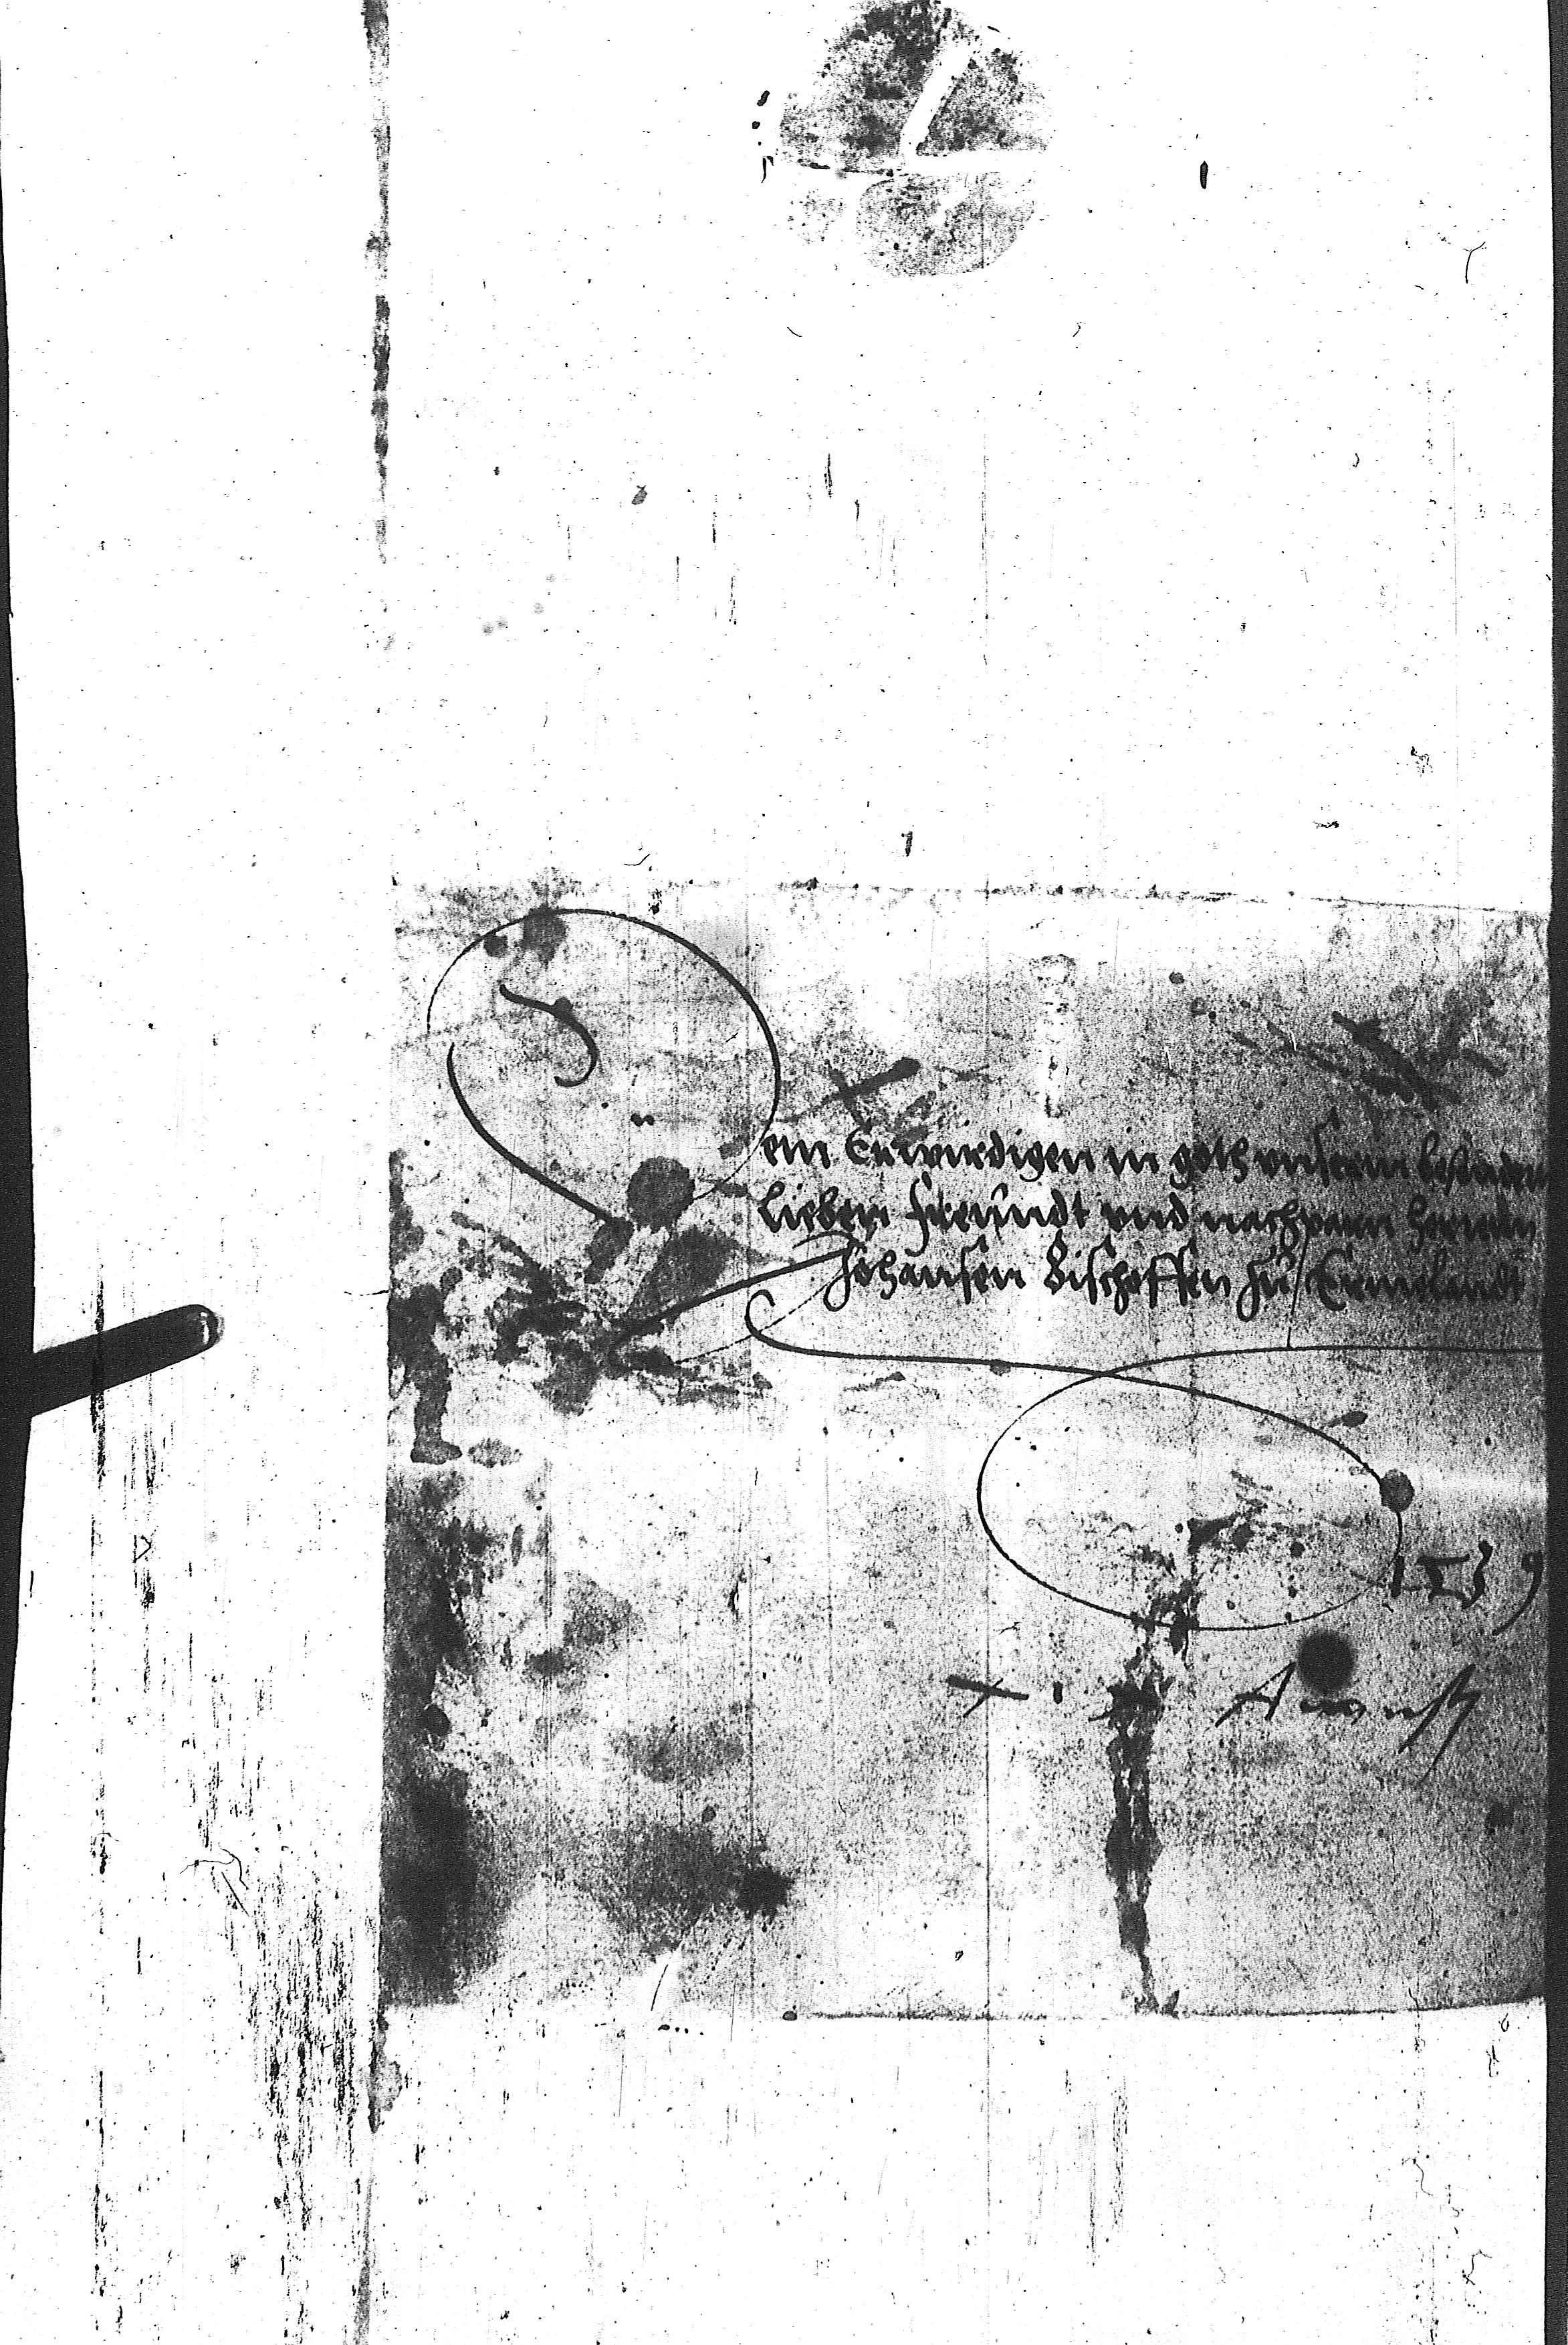 Dem Erwirdigen in goth unserm besundern
lieben freundt und nachparn herrn
Johansen Bischoffen zu Ermelandt
1539
August